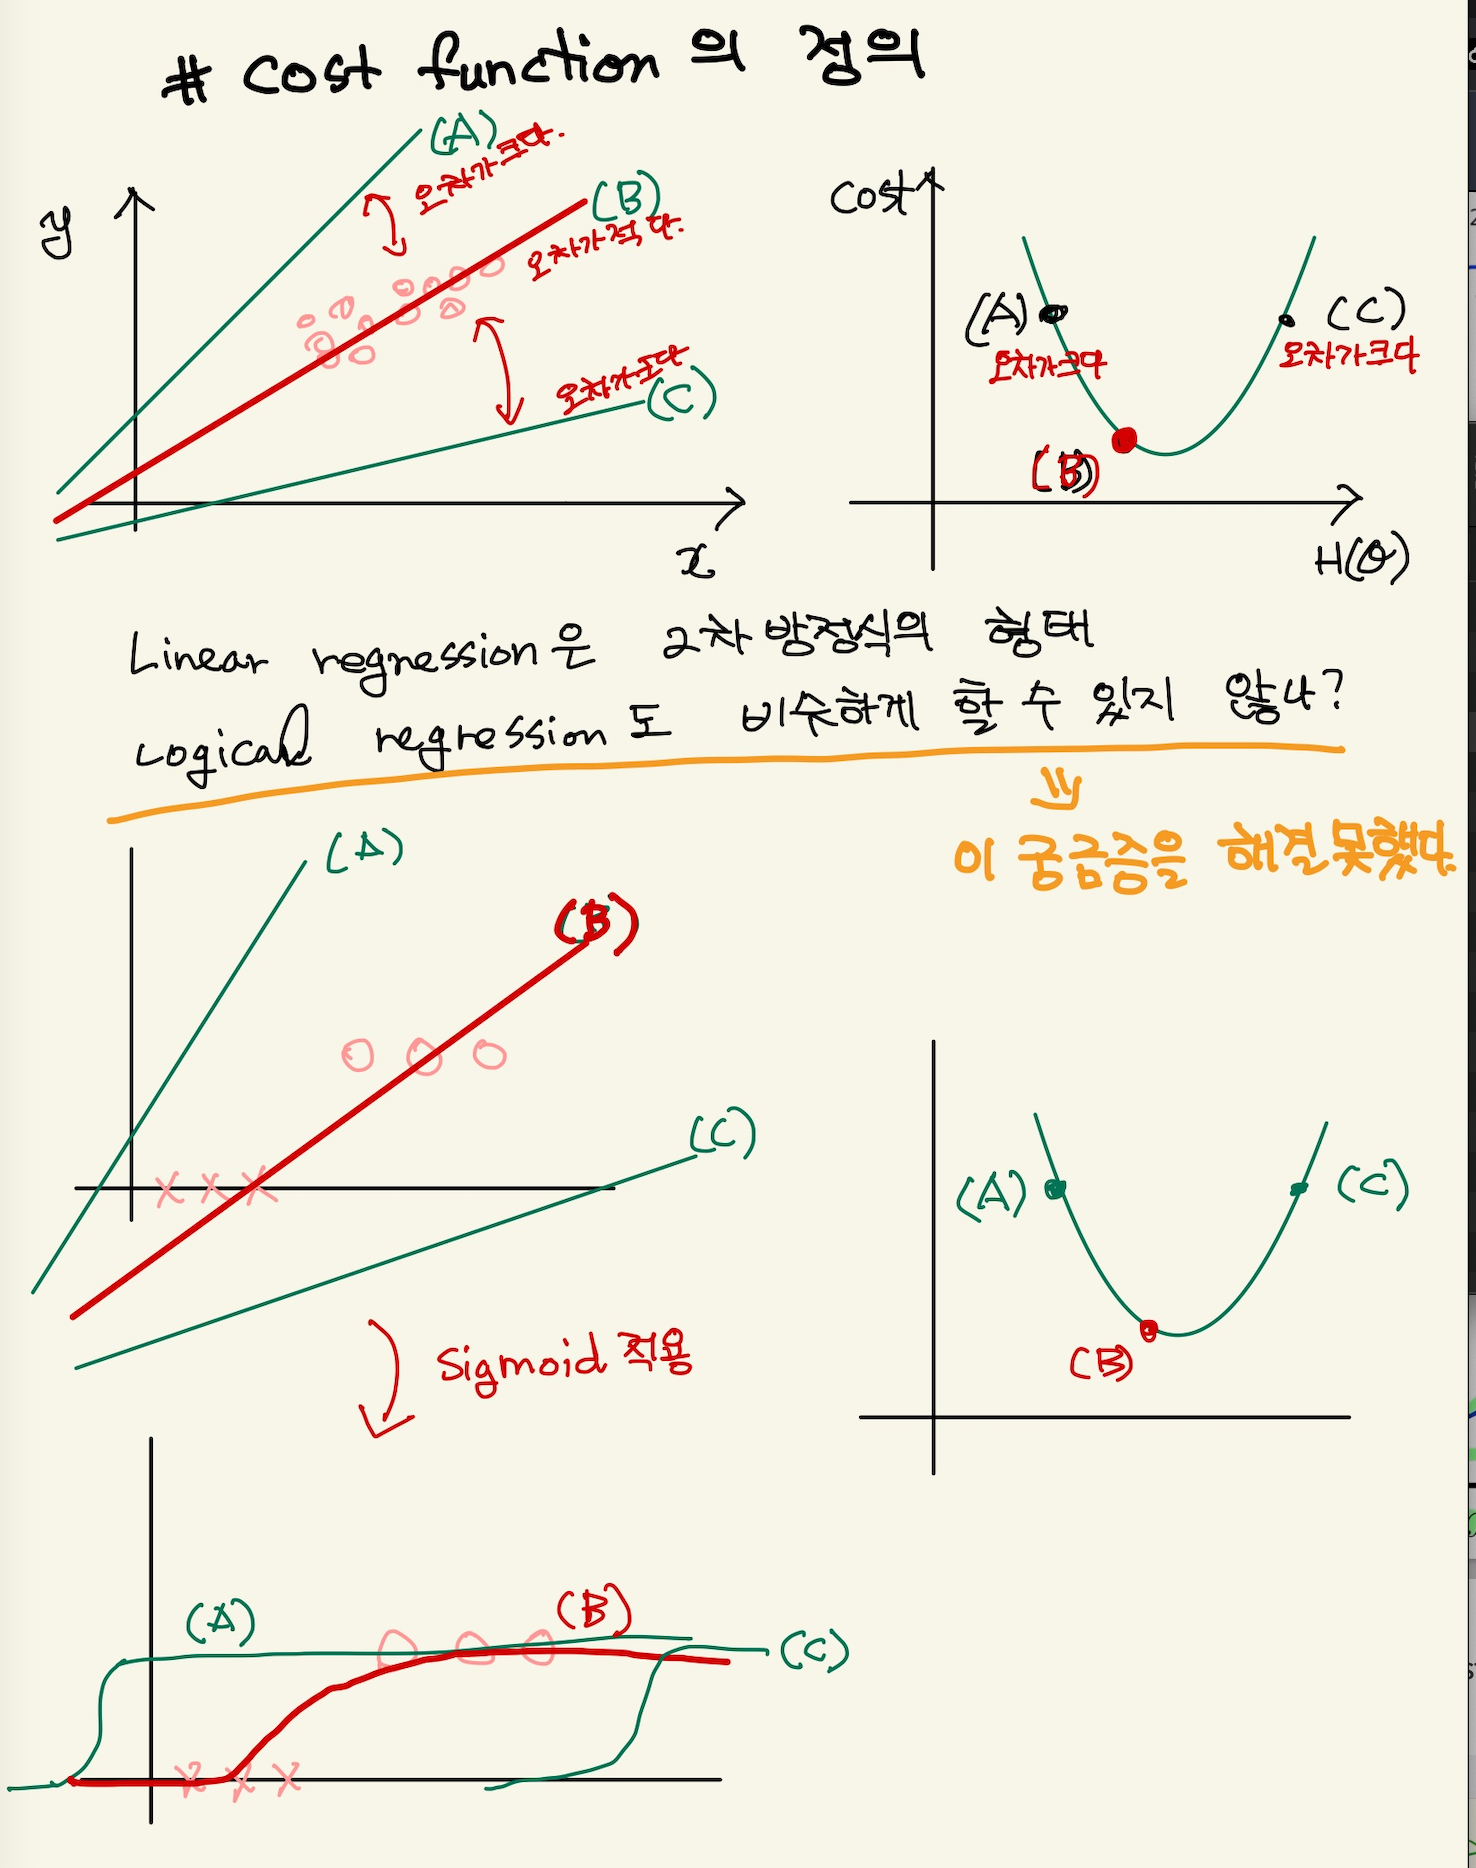 # Cost function 의 정의
(A)
오차가크다.
(B)
오차가적다.
y
오차가크다
(C)
x
Cost
(A)
오차가크다
(C)
오차가크다
(B)
H(θ)
Linear regression은 2차방정식의 형태
Logical regression도 비슷하게 할 수 있지 않나?
이 궁금증을 해결못했다.
(A)
(B)
(C)
(A)
(C)
(B)
Sigmoid 적용
(A)
(B)
(C)